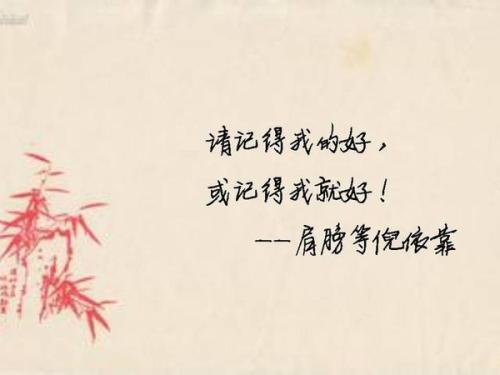 请记得我的好，
或记得我就好！
——肩膀等倪依靠